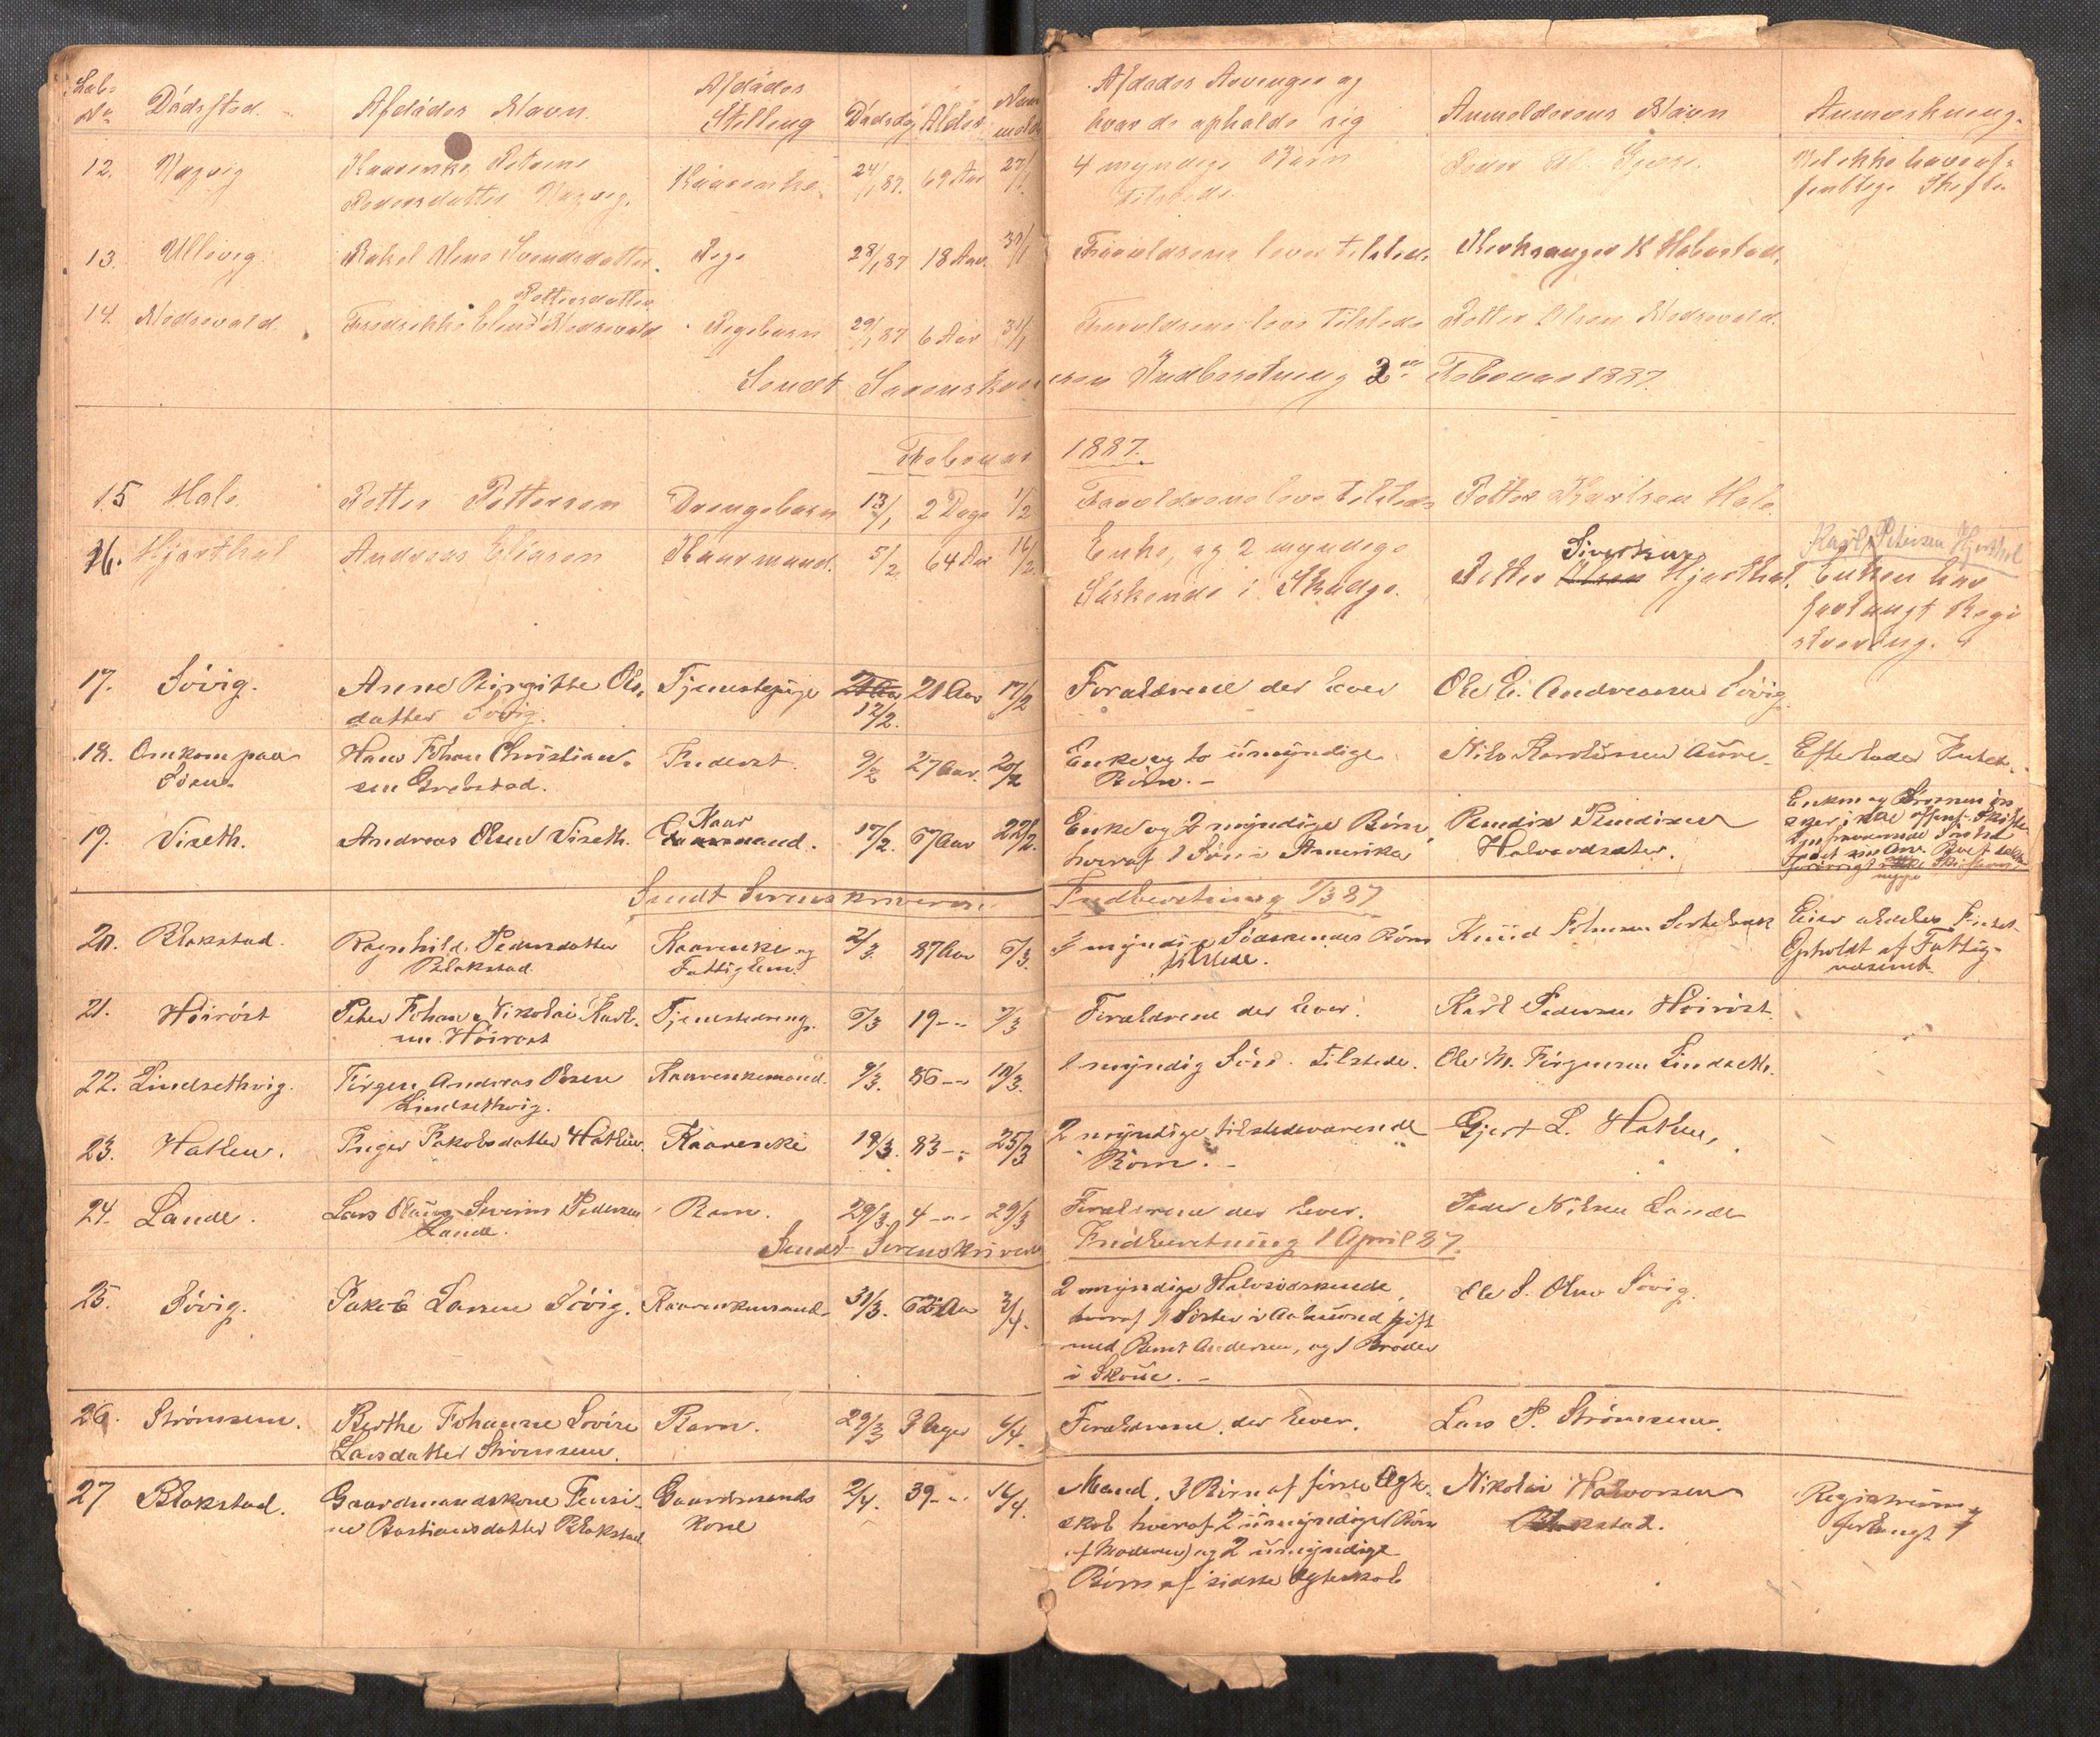 Løb. No
Dødssted.
Afdødes Navn.
Afdødes Stilling
Dødsdag
Alder
Afdødes Arvinger og
hvor de opholde sig
Anmelderens Navn
Anmærkning.
12. Vagvig
Kaarenke Petrine
Pedersdatter Vagvig.
Kaarenke.
24/1 87.
69 Aar
27/1
4 myndige Børn
tilstede.
Peder
Vil ikke have of-
fentlige Skifte
13. Ullavig
Rakel Sivendsdatter.
Pige
28/1 87
18 Aar.
31/1
Forældrene lever tilstede
Kirksanger K Habostad.
14. Nedrevold.
Pettersdatter
Fredrikke Nedrevold
Pigebarn
29/1 87
6 Aar
31/1
Forældrene leve tilstede
Petter Olsen Nedrevold.
Sendt Sorenskriveren Indberetning 2den Februar 1887.
Februar 1887.
15 Hole
Petter Pettersen
Drengebarn
13/1
2 Dage
1/2
Forældrene leve tilstede
Petter Karlsen Hole.
16. Hjorthol
Andreas Eliasen
Kaarmand.
5/2
64 Aar
16/2
Enke, og 2 myndige
Søskende i Skodge.
Sivertsen
Petter Olsen Hjorthol.
Karl Petersen Hjorthol
Enken har
forlangt Regi
strering.
17. Søvig.
Anne Birgitte Ols.
datter Søvig.
Tjenestepige
12/2.
21 Aar
17/2
Forældrene der lever
Ole E. Andreasen Søvig
18. Omkom paa
Søen.
Hans Johan Christian-
sen Grebstad.
Inderst.
9/2
27 Aar.
20/2
Enke og to umyndige
Børn. -
Nils Karolusen Aure.
Efterlader Intet.
19. Viseth.
Andreas Olsen Viseth.
Kaar
mand.
17/2.
67 Aar
22/2.
Enke og 2 myndige Børn,
hvoraf 1 Søn i Amerika
Rendix Rendixen
Halvordsæter.
Enken og Sønnen øn
sker ikke offent. Skifte
Sendt Sorenskriveren Indberetning 1/3 87
20. Blakstad.
Ragnhild Pedersdatter
Blakstad
Kaarenke og
Fattiglem.
2/3.
87 Aar
6/3.
myndige Sødskendes Børn
tilstede.
Knud Johnsen
Eier aldeles Intet
Opholdt af Fattig-
væsenet
21. Høirøst
Peter Johan Nikolai Karl-
sen Høirøst
Tjenestedreng.
6/3
19 - "
7/3
Forældrene der lever.
Karl Pedersen Høirøst.
22. Lindsethvig.
Jørgen Andreas Olsen
Lindsethvig.
Kaarenkemand.
9/3.
86 - "
18/3.
1 myndig Søn. tilstede.
Ole M. Jørgensen Lindseth.
23. Hatlen.
Inger Jakobsdatter Hatlen.
Kaarenke
18/3.
83 - "
25/3
2 myndige tilstedeværende
Børn. -
Gjert L. Hatlen,
24. Lande.
Lars Olaus Severin Pedersen
Lande.
Barn.
29/3.
4 - "
29/3
Forældrene der lever.
Peder Nilsen Lande
Sendt Sorenskriveren Indberetning 1 April 87.
25. Søvig.
Jakob Larsen Søvig.
Kaarenkemand.
31/3.
Aar
3/4.
2 myndige Halvsødskende
hvoraf 1 Søster i Aalesund gift
med Bernt Andersen, og 1 Broder
i Skoue. -
Ole S. Olsen Søvig.
26. Strømsem.
Berthe Johanne Lovise
Larsdatter Strømsem.
Barn.
29/3
3 Uger
6/4.
Forældrene der lever.
Lars P. Strømsem.
27 Blakstad.
Gaardmandskone Jensi-
ne Bastiansdatter Blakstad
Gaardmands
kone
2/4.
39 - "
16/4.
Mand, 3 Børn af første Ægte-
skab hvoraf 2 umyndige (Børn
af Moderen) og 2 umyndige
Børn af sidste Ægteskab
Nikolai Halvorsen
Blakstad.
Registrering
forlangt